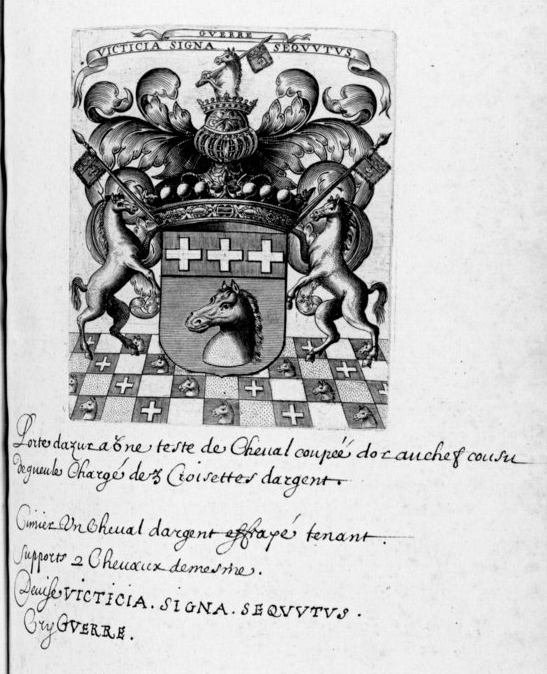 GVERRE
VICTICIA SIGNA SEQVVTVS
Porte dazur a vne teste de Cheval coupeé dor au chef cousu
de gueule Chargé de 3 Croisettes dargent.
Cimier Vn Cheval dargent effrayé tenant.
Supports 2 Chevaux de mesme.
Devise VICTICIA. SIGNA. SEQVVTVS.
Cry GVERRE.